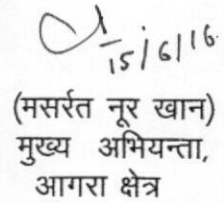 15/6/16
(मसर्रत नूर खान)
मुख्य अभियन्ता,
आगरा क्षेत्र